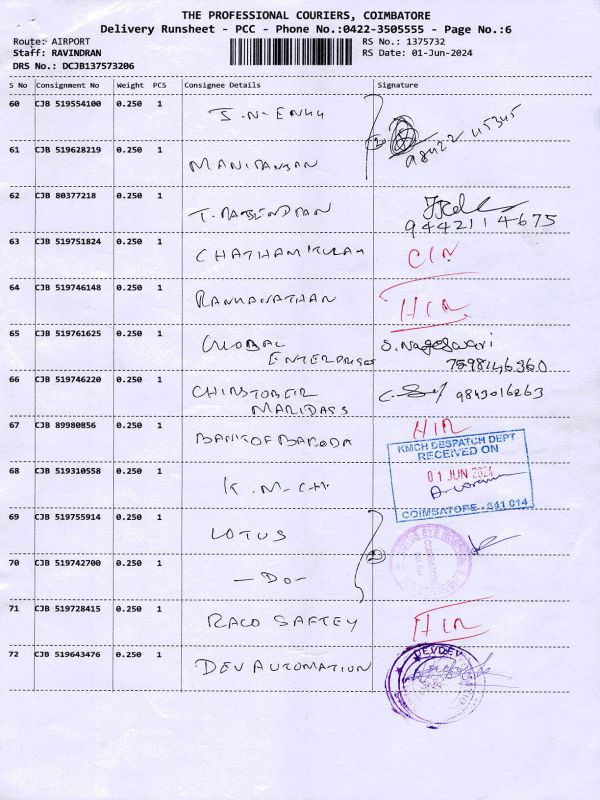 THE PROFESSIONAL COURIERS, COIMBATORE
Delivery Runsheet - PCC - Phone No.:0422-3505555 - Page No.:6
Route: AIRPORT RS No.: 1375732
Staff: RAVINDRAN RS Date: 01-Jun-2024
DRS No.: DCJB137573206
S No Consignment No Weight PCS Consignee Details Signature
60 CJB 519554100 0.250 1
61 CJB 519628219 0.250 1
62 CJB 80377218 0.250 1
94421 14675
63 CJB 519751824 0.250 1
64 CJB 519746148 0.250 1 RANHANATHAN
65 CJB 519761625 0.250 1 GLOBAL S. Nageswari
ENTERPRISES 7598146360
66 CJB 519746220 0.250 1 9843016263
MARIDASS
67 CJB 89980856 0.250 1 BANK OF BARODA
KMCH DESPATCH DEPT
RECEIVED ON
68 CJB 519310558 0.250 1 K.M-CH 01 JUN 2024
COIMBATORE - 641 014
69 CJB 519755914 0.250 1 LOTUS
70 CJB 519742700 0.250 1 -DO-
71 CJB 519728415 0.250 1 SAFTEY
72 CJB 519643476 0.250 1 DEV AUTOMATION